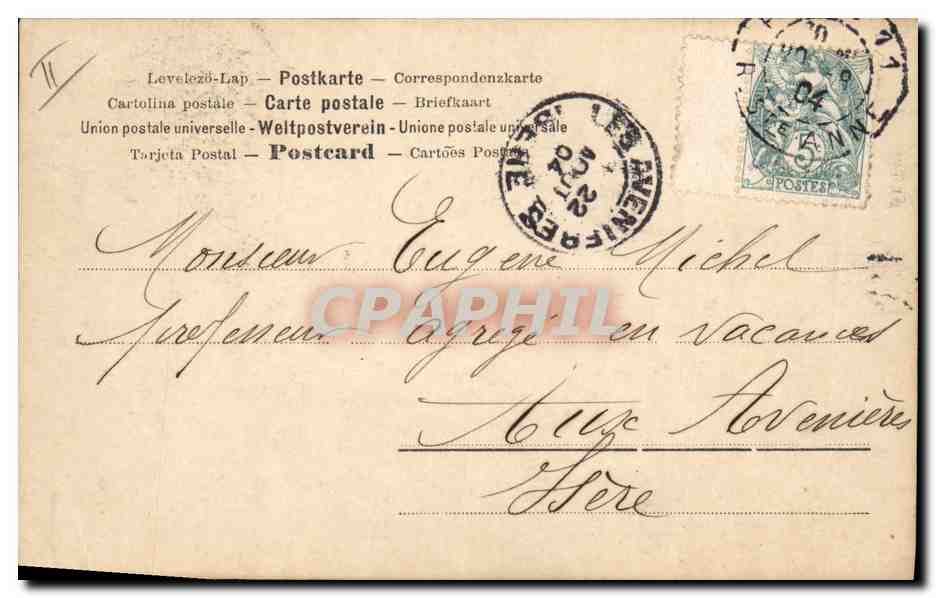 II
Levelező-Lap — Postkarte — Correspondenzkarte
Cartolina postale — Carte postale — Briefkaart
Union postale universelle - Weltpostverein - Unione postale universale
Tarjeta Postal — Postcard — Cartões Postaes
LES AVENIERES ISERE
22
AOUT
04
04
R. STE ANNE
5
POSTES
Monsieur Eugène Michel
professeur agrégé en vacances
Aux Avenières
Isère
CPAPHIL